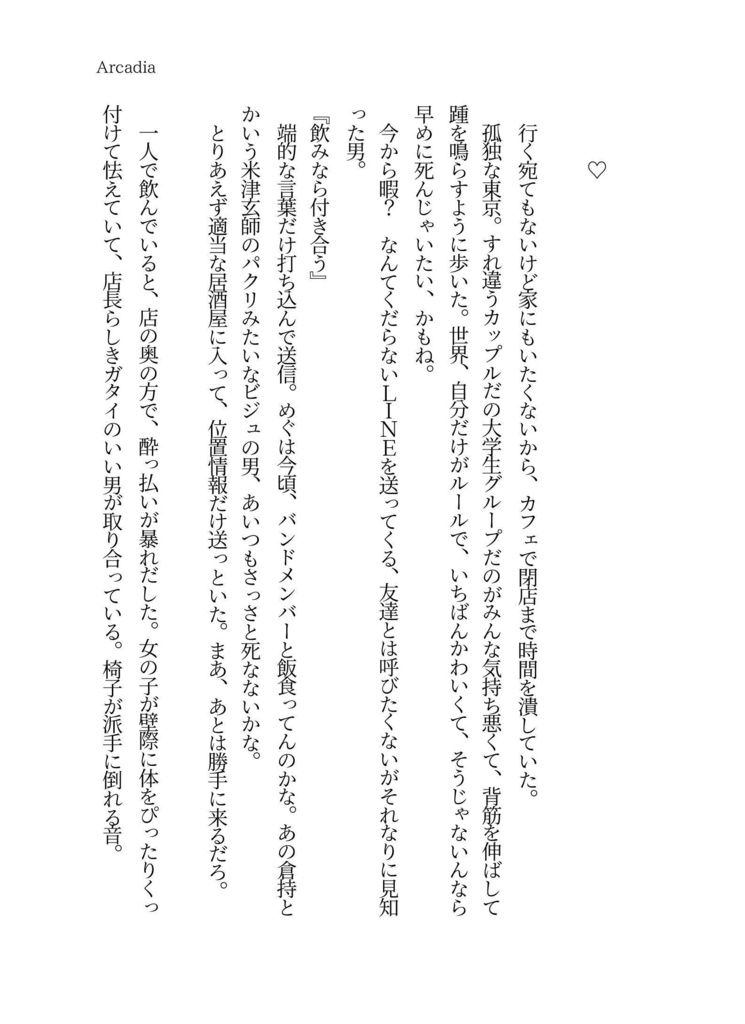 Arcadia
♡
行く宛てもないけど家にもいたくないから、カフェで閉店まで時間を潰していた。
孤独な東京。すれ違うカップルだの大学生グループだのがみんな気持ち悪くて、背筋を伸ばして
踵を鳴らすように歩いた。世界、自分だけがルールで、いちばんかわいくて、そうじゃないんなら
早めに死んじゃいたい、かもね。
今から暇？　なんてくだらないＬＩＮＥを送ってくる、友達とは呼びたくないがそれなりに見知
った男。
『飲みなら付き合う』
端的な言葉だけ打ち込んで送信。めぐは今頃、バンドメンバーと飯食ってんのかな。あの倉持と
かいう米津玄師のパクリみたいなビジュの男、あいつもさっさと死なないかな。
とりあえず適当な居酒屋に入って、位置情報だけ送っといた。まあ、あとは勝手に来るだろ。
一人で飲んでいると、店の奥の方で、酔っ払いが暴れだした。女の子が壁際に体をぴったりくっ
付けて怯えていて、店長らしきガタイのいい男が取り合っている。椅子が派手に倒れる音。